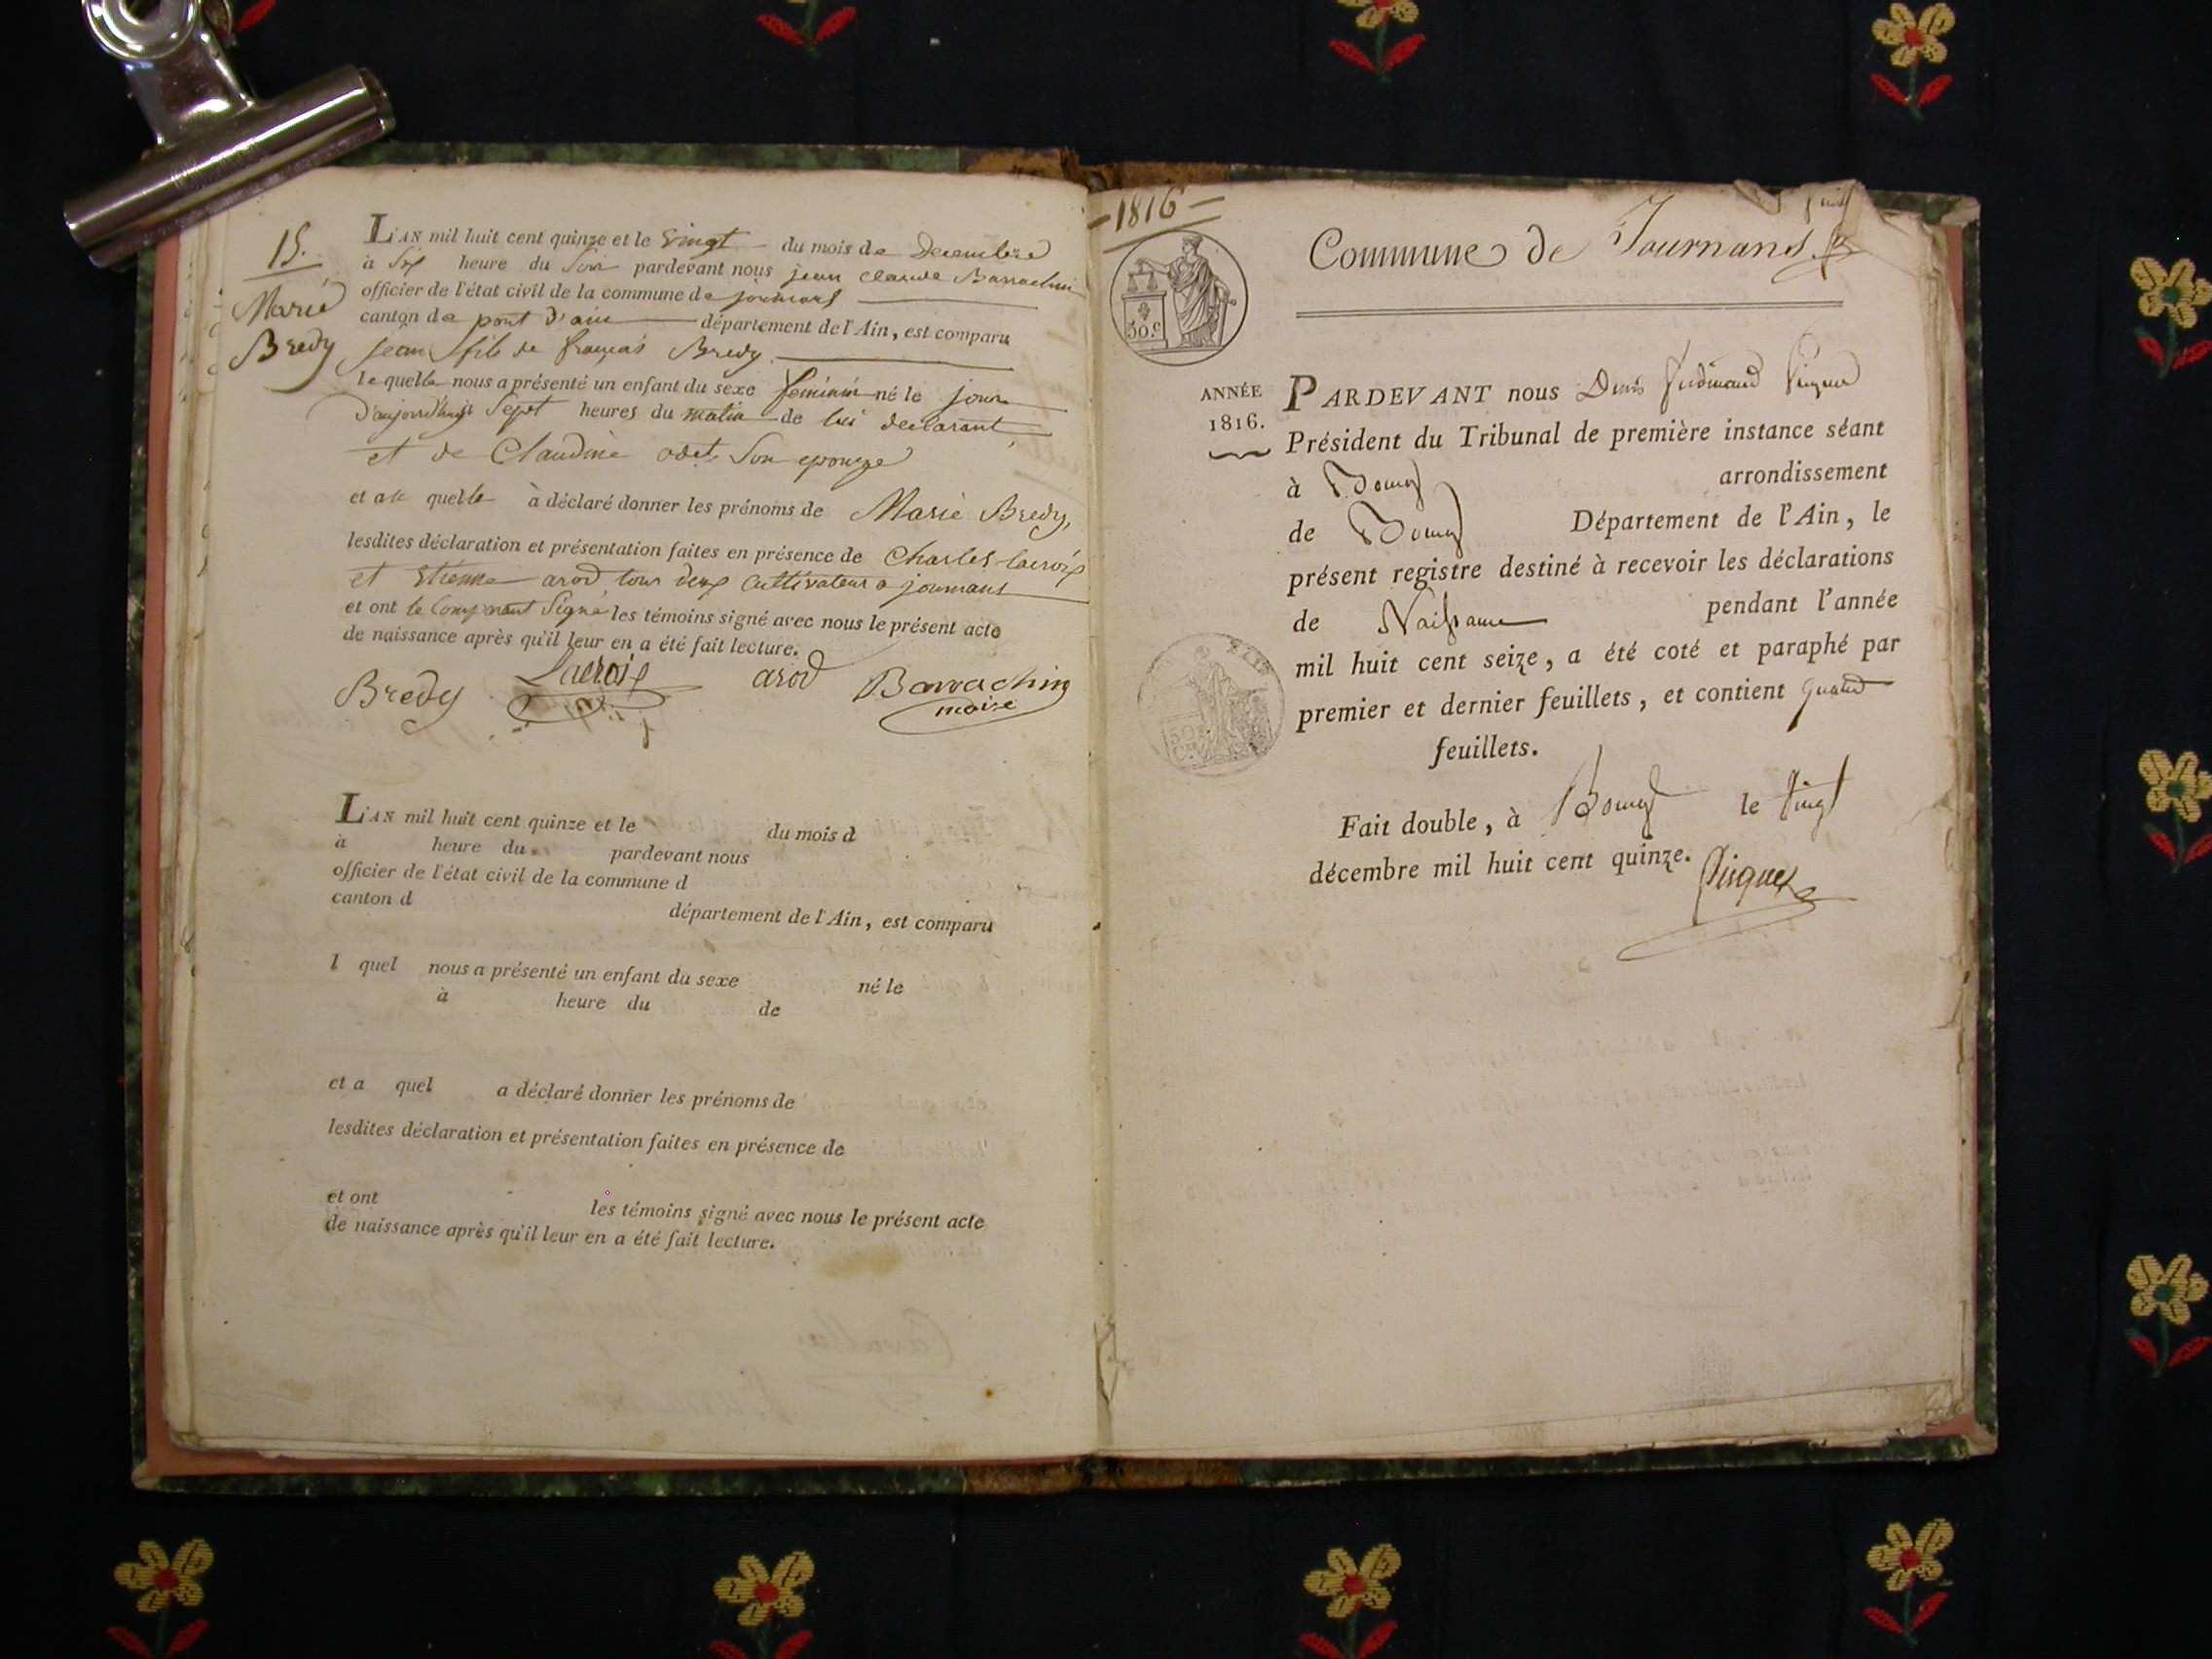 15.
Marie
Bredy
L'AN mil huit cent quinze et le vingt du mois de Decembre
à Six heure du Soir pardevant nous jean claude Barrachin
officier de l'état civil de la commune de journans
canton de pont d'ain département de l'Ain, est comparu
jean fils de françois Bredy
lequelle nous a présenté un enfant du sexe féminin né le jour
d'aujourd'huit Sept heures du matin de lui declarant
et de Claudine odet Son epouze
et au quelle à déclaré donner les prénoms de Marie Bredy,
lesdites déclaration et présentation faites en présence de Charles lacroix
et Etienne arod tous deux Cultivateur a journans
et ont le Comparant Signé les témoins signé avec nous le présent acte
de naissance après qu'il leur en a été fait lecture.
Bredy Lacroix arod Barrachin
maire
L'AN mil huit cent quinze et le du mois d
à heure du pardevant nous
officier de l'état civil de la commune d
canton d département de l'Ain, est comparu
l quel nous a présenté un enfant du sexe né le
à heure du de
et a quel a déclaré donner les prénoms de
lesdites déclaration et présentation faites en présence de
et ont les témoins signé avec nous le présent acte
de naissance après qu'il leur en a été fait lecture.
-1816-
Commune de Journans
30.c
ANNÉE
1816.
PARDEVANT nous Denis ferdinand Piquet
Président du Tribunal de première instance séant
à Bourg arrondissement
de Bourg Département de l'Ain, le
présent registre destiné à recevoir les déclarations
de Naissance pendant l'année
mil huit cent seize, a été coté et paraphé par
premier et dernier feuillets, et contient quatre
feuillets.
Fait double, à Bourg le vingt
décembre mil huit cent quinze.
Piquet